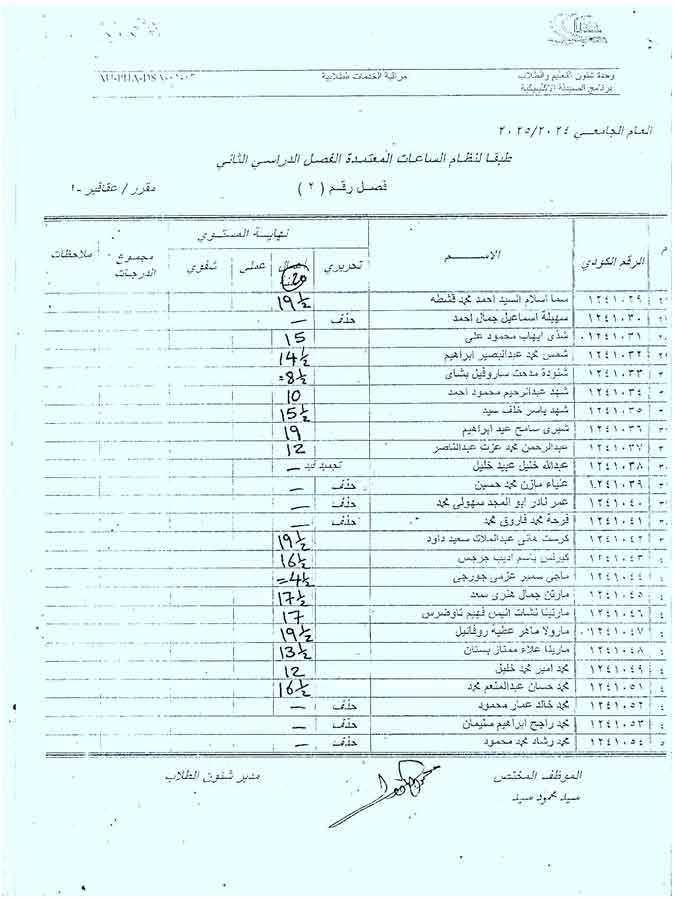 وحدة شئون التعليم والطلاب مراقبة الخدمات الطلابية
برنامج الصيدلة الإكلينيكية
العام الجامعي ٢٠٢٥/٢٠٢٤
طبقا لنظام الساعات المعتمدة الفصل الدراسي الثاني
فصل رقم (٢) مقرر / عقاقير -١
م الرقم الكودي الاســـم نهاية المستوي مجموع الدرجات ملاحظات
تحريري أعمال عملى شفوي
20
١٢٤١٠٢٩ سما اسلام السيد احمد محمد قشطه 19 ½
١٢٤١٠٣٠ سهيلة اسماعيل جمال احمد حذف –
١٢٤١٠٣١ شذى ايهاب محمود على 15
١٢٤١٠٣٢ شمس محمد عبدالبصير ابراهيم 14 ½
١٢٤١٠٣٣ شنودة مدحت ساروفيل بشاى = 8 ½
١٢٤١٠٣٤ شهد عبدالرحيم محمود احمد 10
١٢٤١٠٣٥ شهد ياسر خلف سيد 15 ½
١٢٤١٠٣٦ شيرى سامح عيد ابراهيم 19
١٢٤١٠٣٧ عبدالرحمن محمد عزت عبدالناصر 12
١٢٤١٠٣٨ عبدالله خليل عبيد خليل تجميد قيد –
١٢٤١٠٣٩ علياء مازن محمد حسين حذف –
١٢٤١٠٤٠ عمر نادر ابو المجد سهولى محمد حذف –
١٢٤١٠٤١ فرحة محمد فاروق محمد حذف –
١٢٤١٠٤٢ كرست هانى عبدالملاك سعيد داود 19 ½
١٢٤١٠٤٣ كيرلس باسم اديب جرجس 16 ½
١٢٤١٠٤٤ ماجى سمير عزمى جورجى = 4 ½
١٢٤١٠٤٥ مارتن جمال هنرى سعد 17 ½
١٢٤١٠٤٦ مارتينا نشات انيس فهيم تاوضرس 17
١٢٤١٠٤٧ مارولا ماهر عطية روفائيل 19 ½
١٢٤١٠٤٨ مارينا علاء ممتاز بستان 13 ½
١٢٤١٠٤٩ محمد امير محمد خليل 12
١٢٤١٠٥١ محمد حسان عبدالمنعم محمد 16 ½
١٢٤١٠٥٢ محمد خالد عمار محمود حذف –
١٢٤١٠٥٣ محمد راجح ابراهيم سليمان حذف –
١٢٤١٠٥٤ محمد رشاد محمد محمود حذف –
الموظف المختص مدير شئون الطلاب
سيد محمود سيد